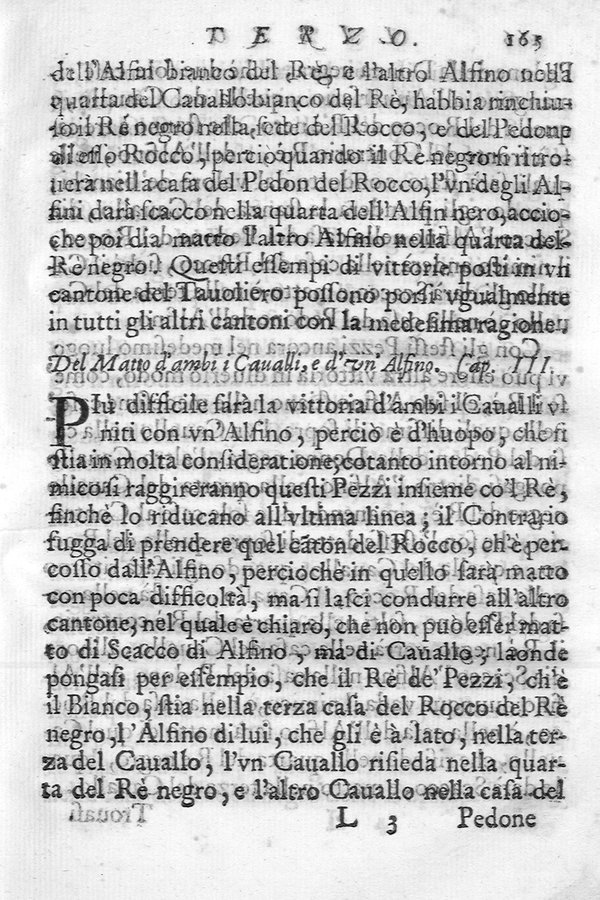 TERZO. 165
dell'Alfin bianco del Rè, e l'altro Alfino nella
quarta del Cauallo bianco del Rè, habbia rinchiu-
so il Rè negro nella sede del Rocco, e del Pedone
all'esso Rocco, perciò quando il Rè negro si ritro-
uerà nella casa del Pedon del Rocco, l'vn degli Al-
fini darà scacco nella quarta dell'Alfin nero, accio-
che poi dia matto l'altro Alfino nella quarta del
Rè negro. Questi essempi di vittorie posti in vn
cantone del Tauoliero possono porsi vgualmente
in tutti gli altri cantoni con la medesima ragione.
Del Matto d'ambi i Caualli, e d'vn' Alfino. Cap. III.
PIù difficile sarà la vittoria d'ambi i Caualli v-
niti con vn'Alfino, perciò è d'huopo, che si
stia in molta consideratione, cotanto intorno al ni-
mico si raggireranno questi Pezzi insieme co'l Rè,
finchè lo riducano all'vltima linea; il Contrario
fugga di prendere quel cãton del Rocco, ch'è per-
cosso dall'Alfino, percioche in quello sarà matto
con poca difficoltà, ma si lasci condurre all'altro
cantone, nel quale è chiaro, che non può esser mat-
to di Scacco di Alfino, ma di Cauallo; laonde
pongasi per essempio, che il Rè de' Pezzi, ch'è
il Bianco, stia nella terza casa del Rocco del Rè
negro, l'Alfino di lui, che gli è à lato, nella ter-
za del Cauallo, l'vn Cauallo risieda nella quar-
ta del Rè negro, e l'altro Cauallo nella casa del
L 3 Pedone